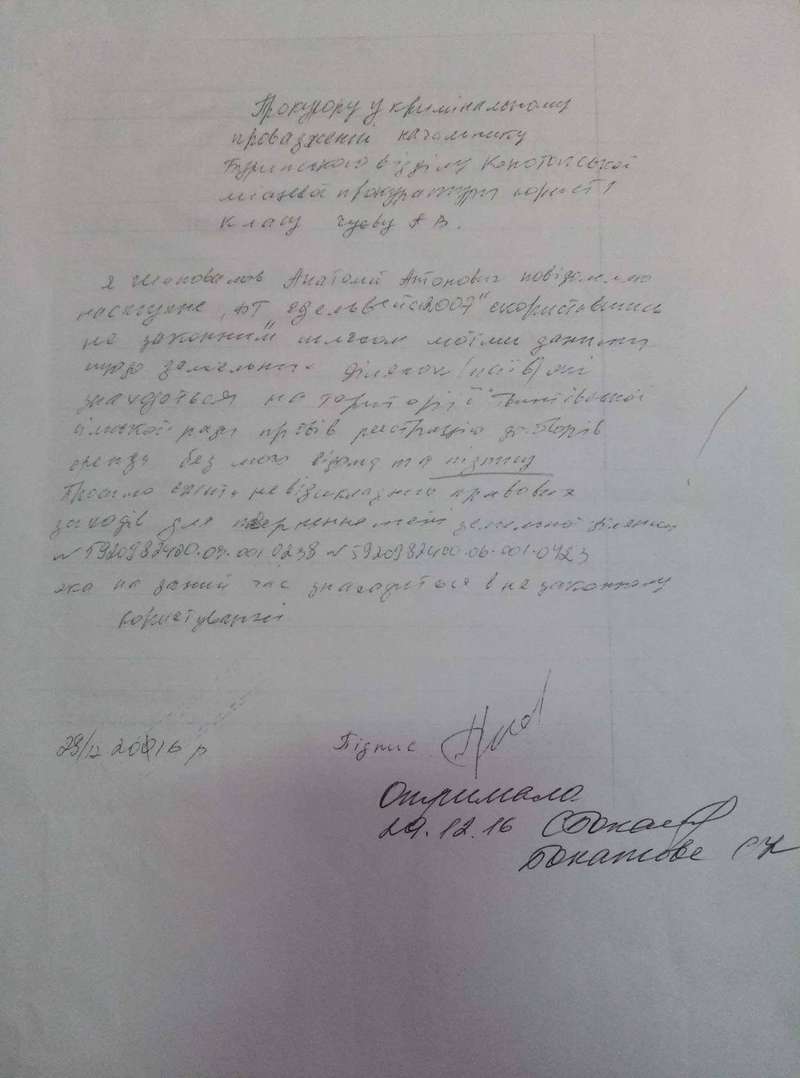 Прокурору у кримінальному
провадженні начальнику
Буринського відділу Конотопської
місцевої прокуратури юрист 1
класу Чуєву А В.
Я Шаповалов Анатолій Антонович повідомляю
наступне, "ФГ Едельвейс 2007" скориставшись
не законним шляхом моїми даними
щодо земельних ділянок (паїв) які
знаходяться на території
сільської ради провів реєстрацію договорів
оренди без мого відома та підпису
Прошу вжити невідкладних правових
заходів для повернення мені земельної ділянки
яка на даний час знаходиться в не законному
користуванні
29/12 2016 р Підпис
Отримала
29.12.16